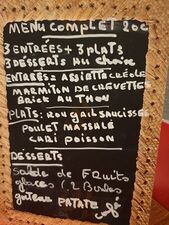 MENU COMPLET 20€
3 ENTRÉES + 3 PLATS
3 DESSERTS AU CHOIX
ENTRÉES = ASSIETTE CRÉOLE
MARMITON DE CREVETTES
BRICK AU THON
PLATS: ROUGAIL SAUCISSES
POULET MASSALÉ
CARI POISSON
DESSERTS
Salade de FRUITS
glaces (2 Boules
gateau PATATE